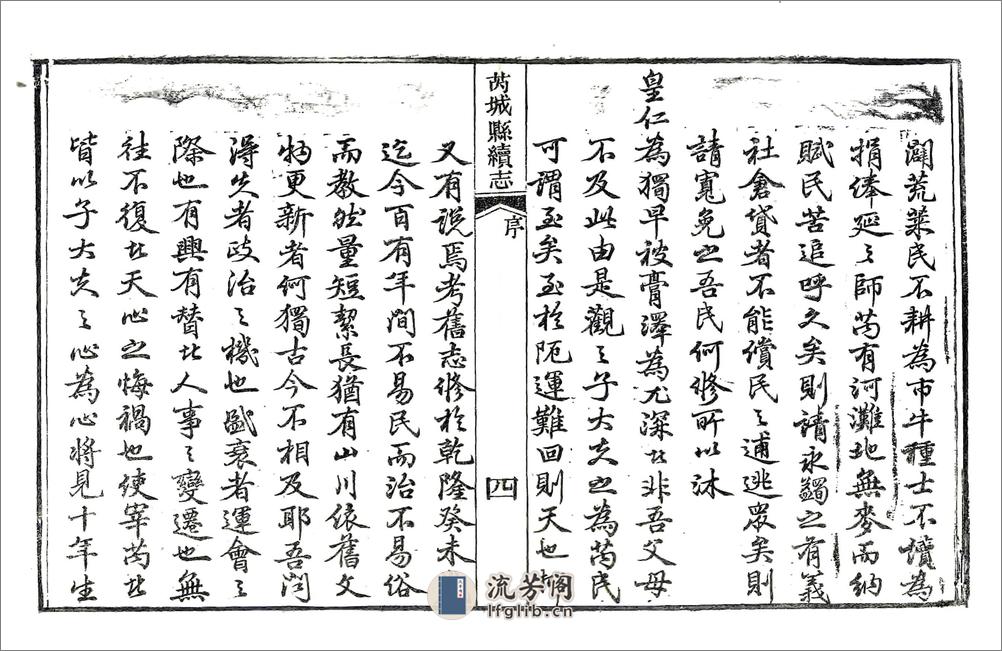 闢荒萊民不耕為市牛種士不讀為
捐俸延之師芮有河灘地無麥而納
賦民苦追呼久矣則請永蠲之有義
社倉貸者不能償民之逋逃眾矣則
請寬免之吾民何修所以沐
皇仁為獨早被膏澤為尤深此非吾父母
不及此由是觀之子大夫之為芮民
可謂至矣至於阨運難回則天也
芮城縣續志
序
四
又有說焉考舊志修於乾隆癸未
迄今百有年間不易民而治不易俗
而教然量短絜長猶有山川依舊文
物更新者何獨古今不相及耶吾聞
得失者政治之機也盛衰者運會之
際也有興有替此人事之變遷也無
往不復此天心之悔禍也使宰芮此
皆以子大夫之心為心將見十年生
流芳阁
lfglib.cn